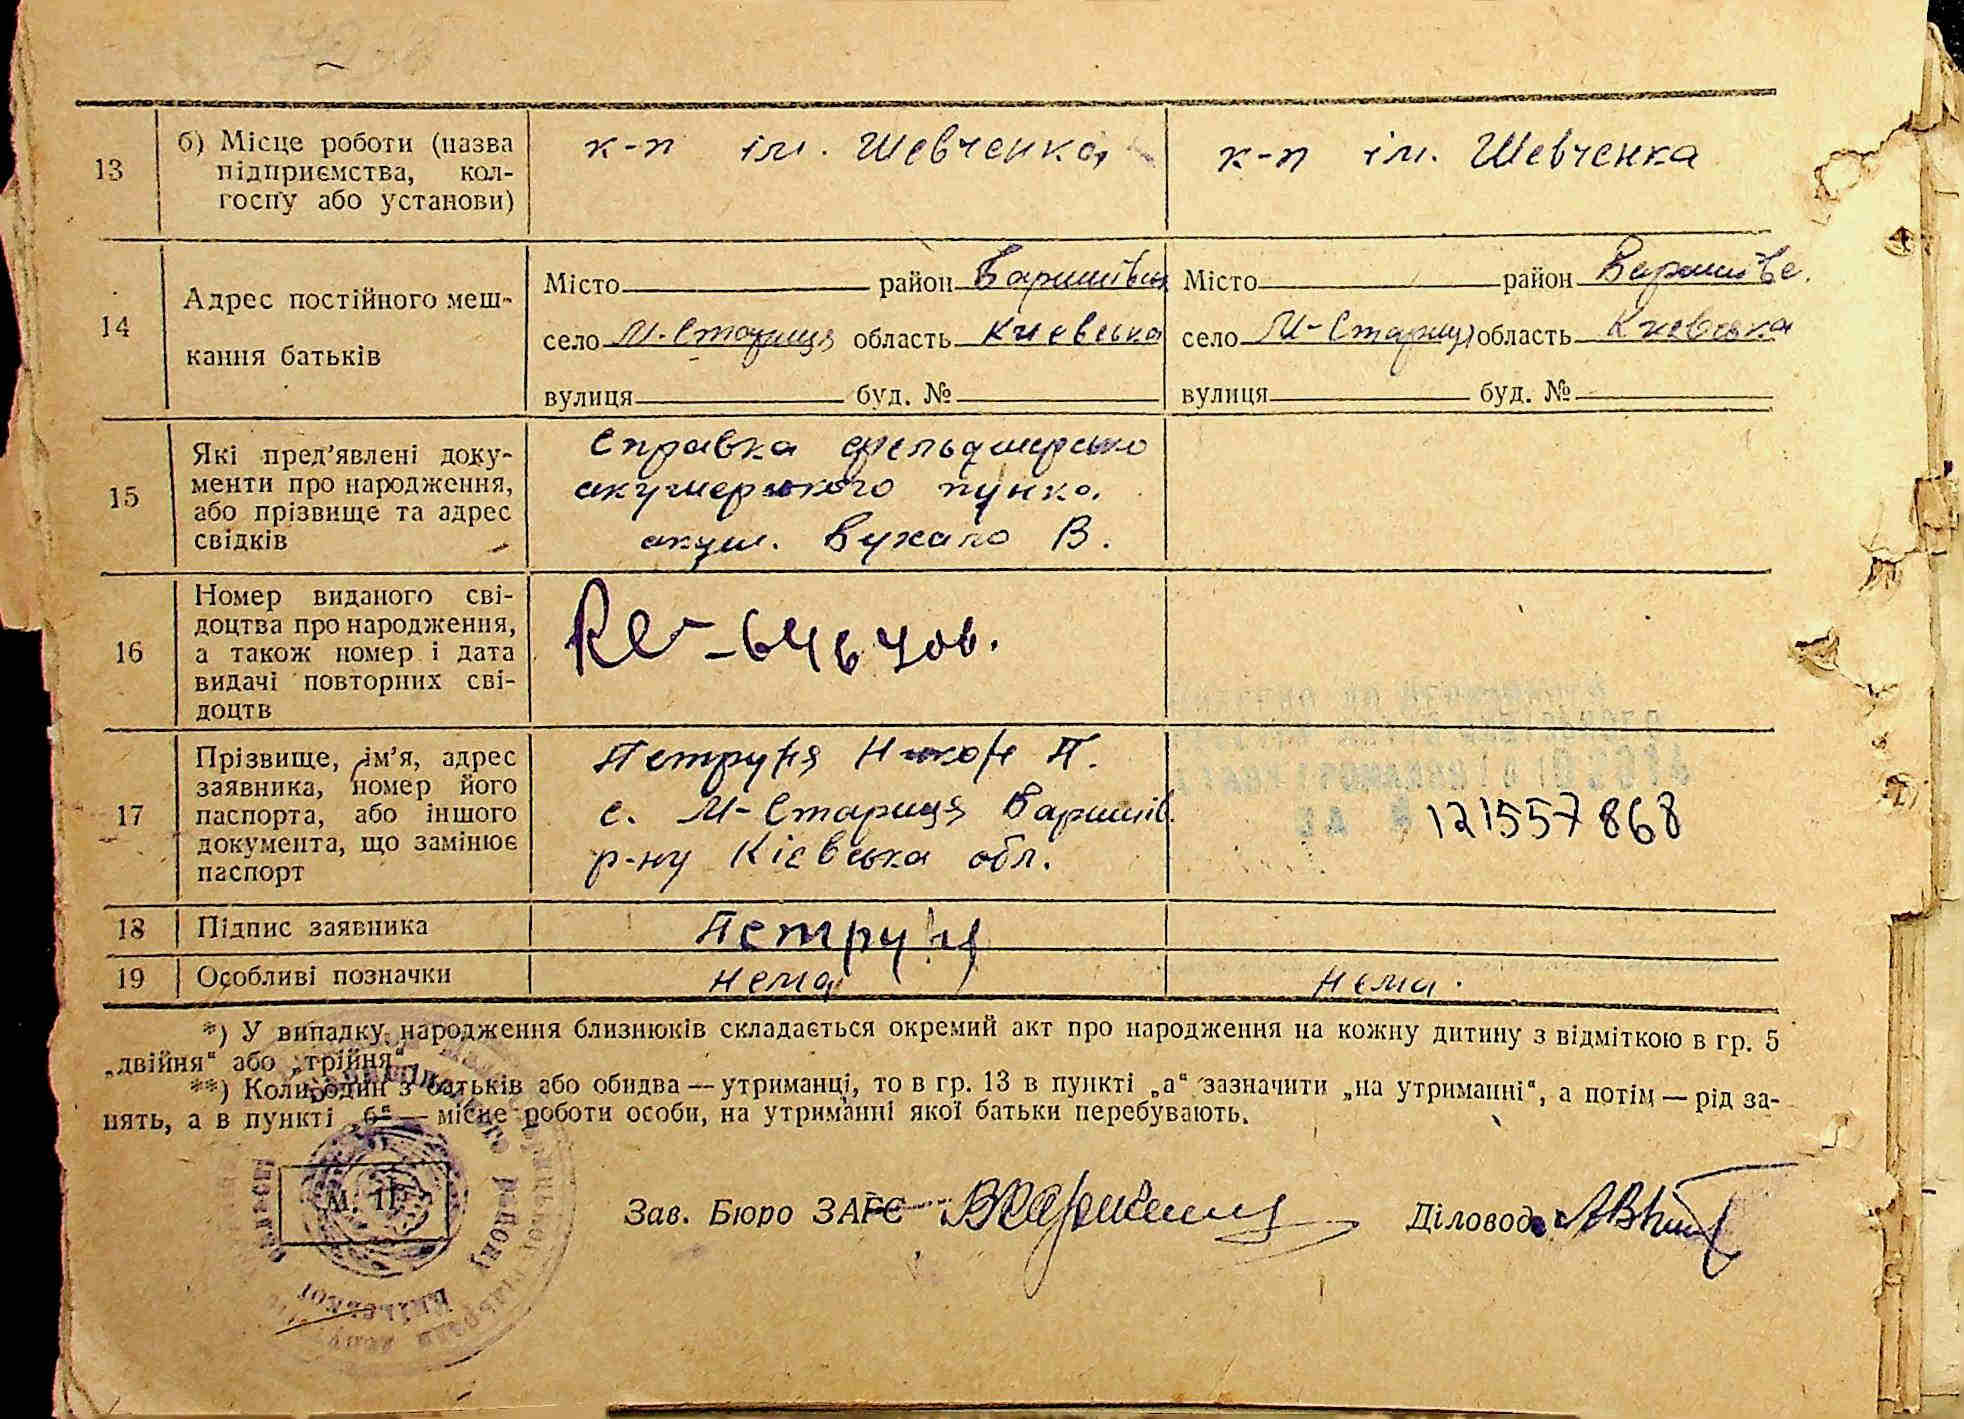 13
б) Місце роботи (назва
підприємства, кол-
госпу або установи)
к-п ім. Шевченка
к-п ім. Шевченка
14
Адрес постійного меш-
кання батьків
Місто район Баришівськ
село М-Стариця область Києвська
вулиця буд. №
Місто район Баришівс.
село М-Стариця область Києвська
вулиця буд. №
15
Які пред’явлені доку-
менти про народження,
або прізвище та адрес
свідків
Справка фельдшерсько
акушерського пунка.
акуш. Бухало В.
16
Номер виданого сві-
доцтва про народження,
а також номер і дата
видачі повторних сві-
доцтв
17
Прізвище, ім’я, адрес
заявника, номер його
паспорта, або іншого
документа, що замінює
паспорт
Петруня Никон П.
с. М-Стариця Баришів.
р-ну Кієвська обл.
121557868
18
Підпис заявника
Петруня
19
Особливі позначки
нема
нема.
*) У випадку народження близнюків складається окремий акт про народження на кожну дитину з відміткою в гр. 5
„двійня“ або „трійня“
**) Коли один з батьків або обидва — утриманці, то в гр. 13 в пункті „а“ зазначити „на утриманні“, а потім — рід за-
нять, а в пункті „б“ — місце роботи особи, на утриманні якої батьки перебувають.
М. П.
Зав. Бюро ЗАГС
Діловод